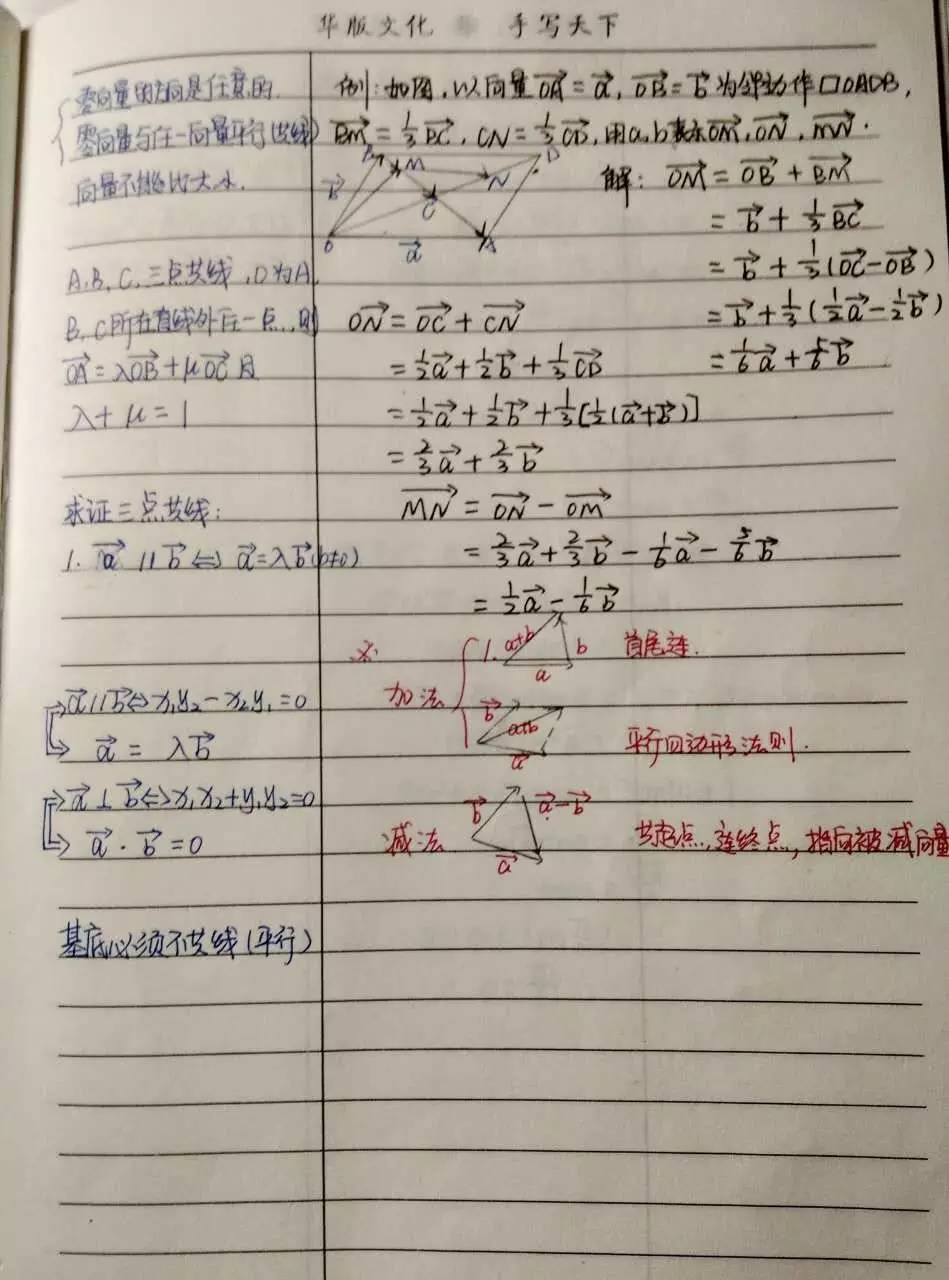 华版文化 手写天下
零向量的方向是任意的.
零向量与任一向量平行(共线)
向量不能比大小.
A,B,C,三点共线,O为A,
B,C所在直线外任一点,则
OA⃗=λOB⃗+μOC⃗且
λ+μ=1
求证三点共线:
1. a⃗∥b⃗⇔a⃗=λb⃗(b≠0)
a⃗∥b⃗⇔x₁y₂-x₂y₁=0
a⃗=λb⃗
a⃗⊥b⃗⇔x₁x₂+y₁y₂=0
a⃗·b⃗=0
基底必须不共线(平行)
例:如图,以向量OA⃗=a⃗,OB⃗=b⃗为邻边作□OADB,
BM⃗=1/3BC⃗,CN⃗=1/3CD⃗,用a,b表示OM⃗,ON⃗,MN⃗.
B M D
b⃗ C N
O a⃗ A
解:OM⃗=OB⃗+BM⃗
=b⃗+1/3BC⃗
=b⃗+1/3(OC⃗-OB⃗)
=b⃗+1/3(1/2a⃗-1/2b⃗)
=1/6a⃗+5/6b⃗
ON⃗=OC⃗+CN⃗
=1/2a⃗+1/2b⃗+1/3CD⃗
=1/2a⃗+1/2b⃗+1/3[1/2(a⃗+b⃗)]
=2/3a⃗+2/3b⃗
MN⃗=ON⃗-OM⃗
=2/3a⃗+2/3b⃗-1/6a⃗-5/6b⃗
=1/2a⃗-1/6b⃗
加法
1. a+b b a 首尾连.
b⃗ a+b a⃗ 平行四边形法则.
减法 b⃗ a⃗-b⃗ a⃗ 共起点,连终点,指向被减向量